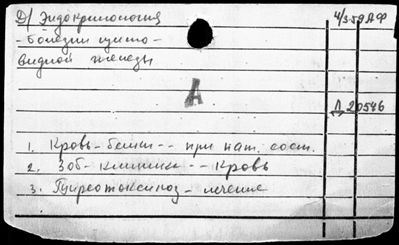 Д/ Эндокринология 4/3-59 АФ
болезни щито-
видной железы
А
Д 20546
1. Кровь-белки -- при пат. сост.
2. Зоб-клиника -- кровь
3. Тиреотоксикоз - лечение